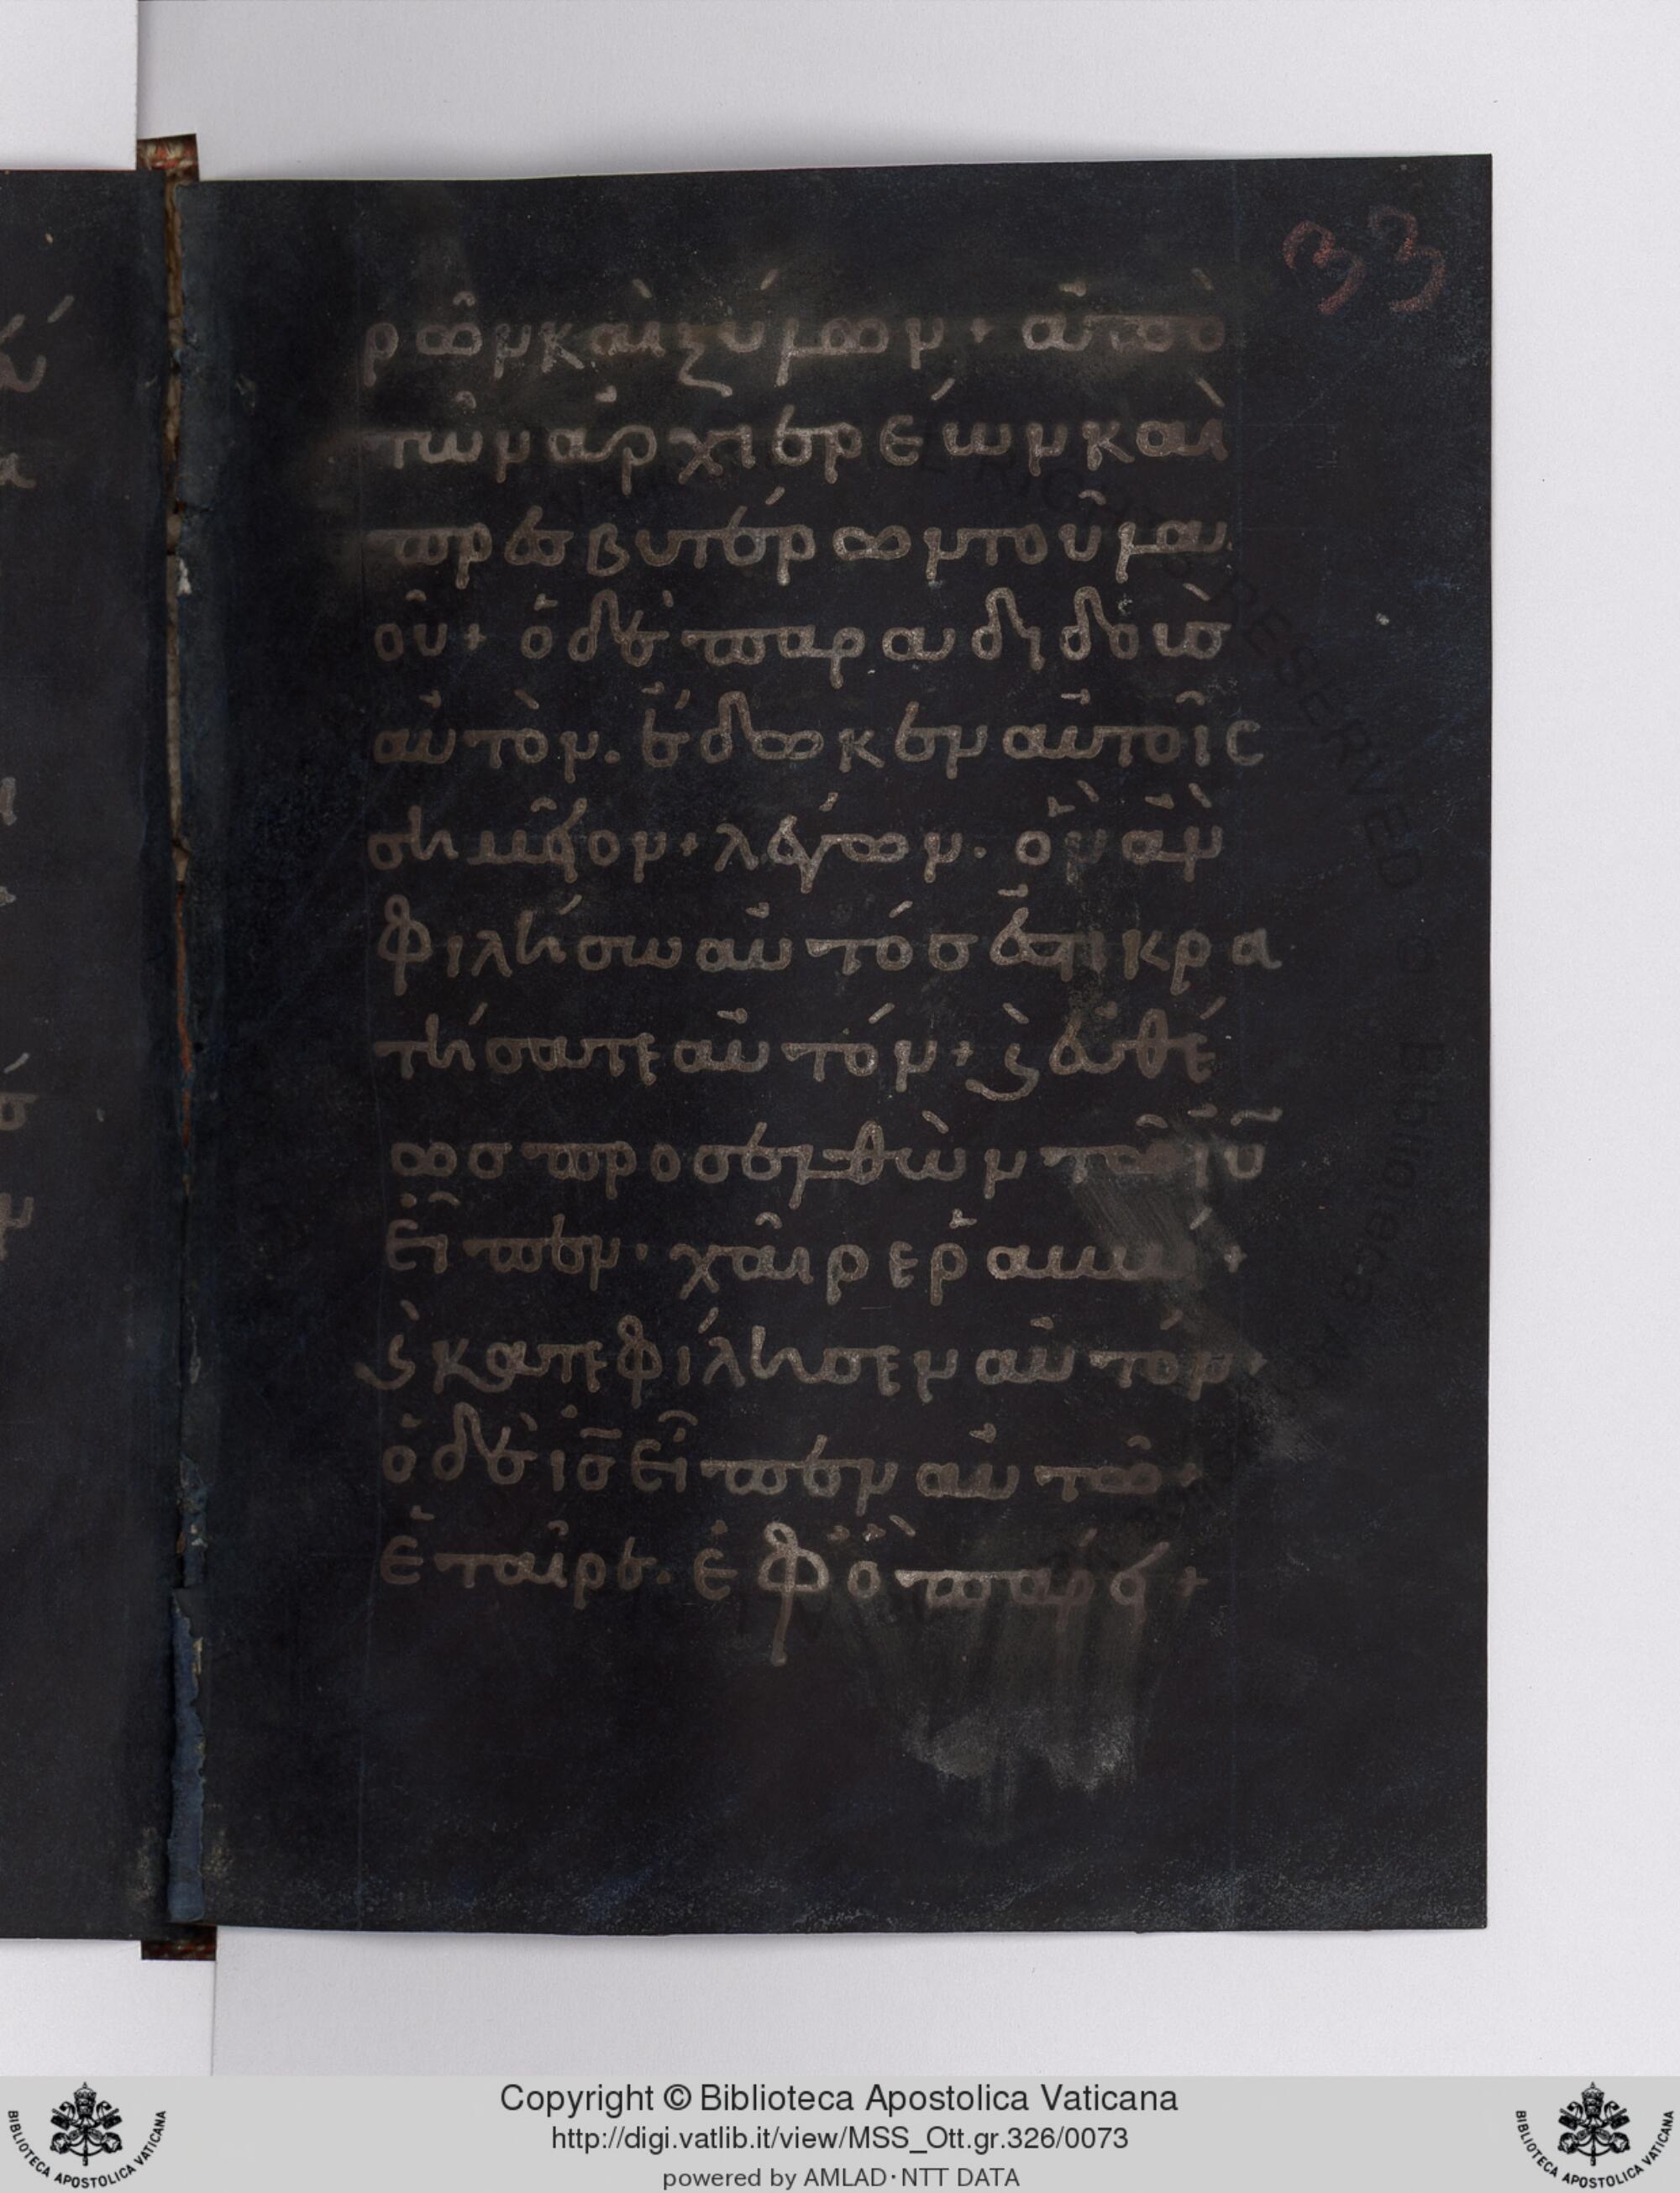 33
ρῶν καὶ ξύλων + ἀπὸ
τῶν ἀρχιερέων καὶ
πρεσβυτέρων τοῦ λα
οῦ + ὁ δὲ παραδιδοὺσ
αὐτὸν. ἔδωκεν αὐτοῖς
σημεῖον + λέγων. ὃν ἂν
φιλήσω αὐτόσ ἐστι κρα
τήσατε αὐτόν + ϗ εὐθέ
ωσ προσελθὼν τῶ ιῦ
εἶπεν. χαῖρε ῥαββί +
ϗ κατεφίλησεν αὐτόν.
ὁ δὲ ισ̅ εἶπεν αὐτῶ.
ἑταῖρε. ἐφ ὃ πάρει +
Copyright © Biblioteca Apostolica Vaticana
http://digi.vatlib.it/view/MSS_Ott.gr.326/0073
powered by AMLAD·NTT DATA
BIBLIOTECA APOSTOLICA VATICANA
BIBLIOTECA APOSTOLICA VATICANA